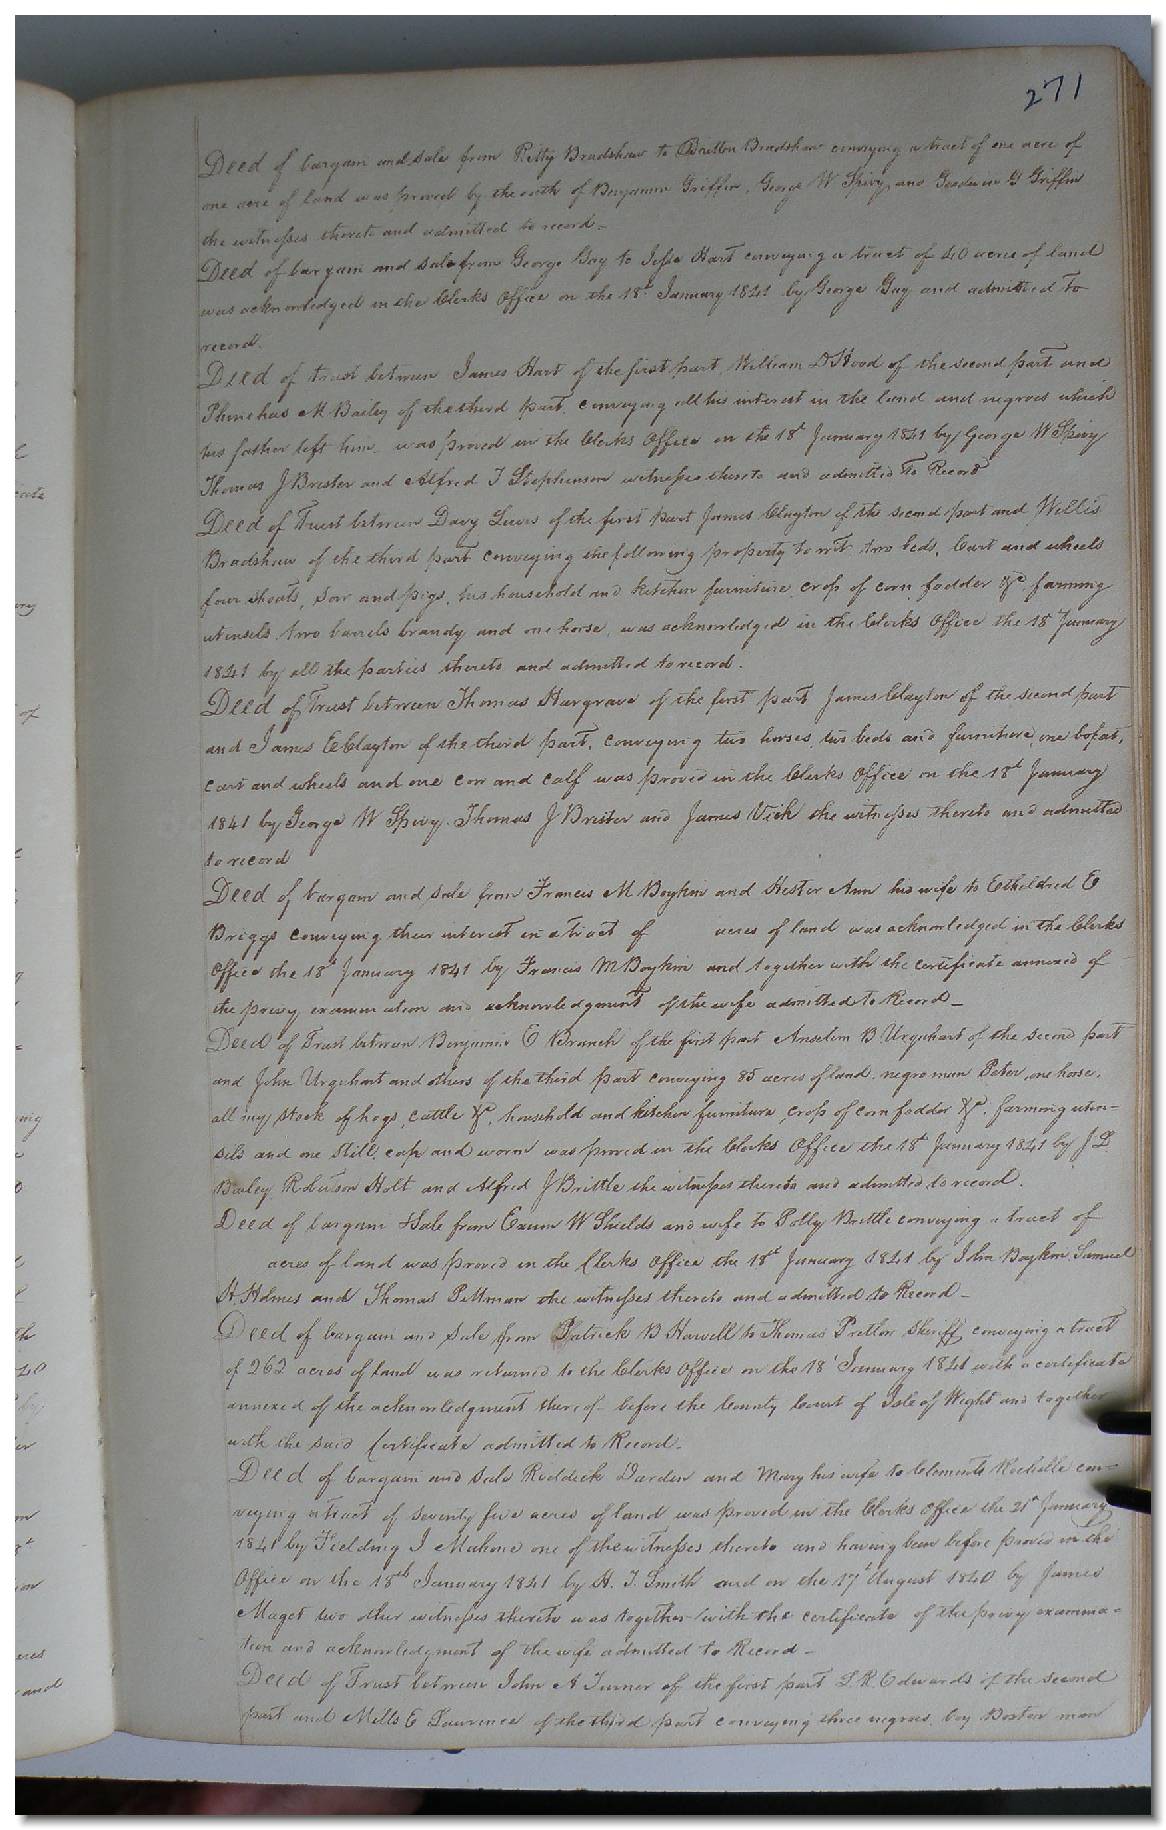 271
Deed of bargain and sale from Pitty Bradshaw to Britton Bradshaw conveying a tract of one acre of
one acre of land was proved by the oath of Benjamin Griffin, George W Spivy, and Goodwin G Griffin
the witnesses thereto and admitted to record –
Deed of bargain and sale from George Gay to Jesse Hart conveying a tract of 40 acres of land
was acknowledged in the Clerks Office on the 18th January 1841 by George Gay and admitted to
record.
Deed of trust between James Hart of the first part, William D Hood of the second part and
Phinehas M Bailey of the third part, conveying all his interest in the land and negroes which
his father left him, was proved in the Clerks Office on the 18th January 1841 by George W Spivy
Thomas J Brister and Alfred T Stephenson witnesses thereto and admitted to Record
Deed of Trust between Davy Lewis of the first part James Clayton of the second part and Willis
Bradshaw of the third part conveying the following property to wit two beds, Cart and wheels
four shoats, sow and pigs, his household and kitchen furniture, crop of corn, fodder &c farming
utensils, two barrels brandy and one horse, was acknowledged in the Clerks Office the 18th January
1841 by all the parties thereto and admitted to record.
Deed of Trust between Thomas Hargrave of the first part James Clayton of the second part
and James E Clayton of the third part, conveying two horses, two beds and furniture, one bofat,
cart and wheels and one cow and calf was proved in the Clerks Office on the 18th January
1841 by George W Spivy, Thomas J Brister and James Vick the witnesses thereto and admitted
to record
Deed of bargain and sale from Francis M Boykin and Hester Ann his wife to Etheldred E
Briggs conveying their interest in a tract of acres of land was acknowledged in the Clerks
Office the 18th January 1841 by Francis M Boykin and together with the certificate annexed of
the privy examination and acknowledgment of the wife admitted to Record –
Deed of Trust between Benjamin E Branch of the first part Anselm B Urquhart of the second part
and John Urquhart and others of the third part conveying 85 acres of land, negro man Peter, one horse,
all my stock of hogs, cattle &c, household and kitchen furniture, crop of corn fodder &c. farming uten–
sils and one Still, cap and worm was proved in the Clerks Office the 18th January 1841 by J D
Bailey, Robertson Holt and Alfred J Brittle the witnesses thereto and admitted to record.
Deed of bargain & Sale from Exum W Shields and wife to Polly Brittle conveying a tract of
acres of land was proved in the Clerks Office the 18th January 1841 by John Boykin, Samuel
H. Holmes and Thomas Pittman the witnesses thereto and admitted to Record –
Deed of bargain and sale from Patrick B Howell to Thomas Pretlow Sheriff conveying a tract
of 262 acres of land was returned to the Clerks Office on the 18th January 1841 with a certificate
annexed of the acknowledgment thereof before the County Court of Isle of Wight and together
with the said Certificate admitted to Record.
Deed of bargain and sale Riddick Darden and Mary his wife to Clements Rochelle con–
veying a tract of seventy five acres of land was proved in the Clerks Office the 21st January
1841 by Fielding J Mahone one of the witnesses thereto and having been before proved in the
Office on the 18th January 1841 by H. T. Smith and on the 17th August 1840 by James
Maget two other witnesses thereto was together with the certificate of the privy examina–
tion and acknowledgment of the wife admitted to Record –
Deed of Trust between John A Turner of the first part L R Edwards of the second
part and Mills E Lawrence of the third part conveying three negroes, boy Boston man